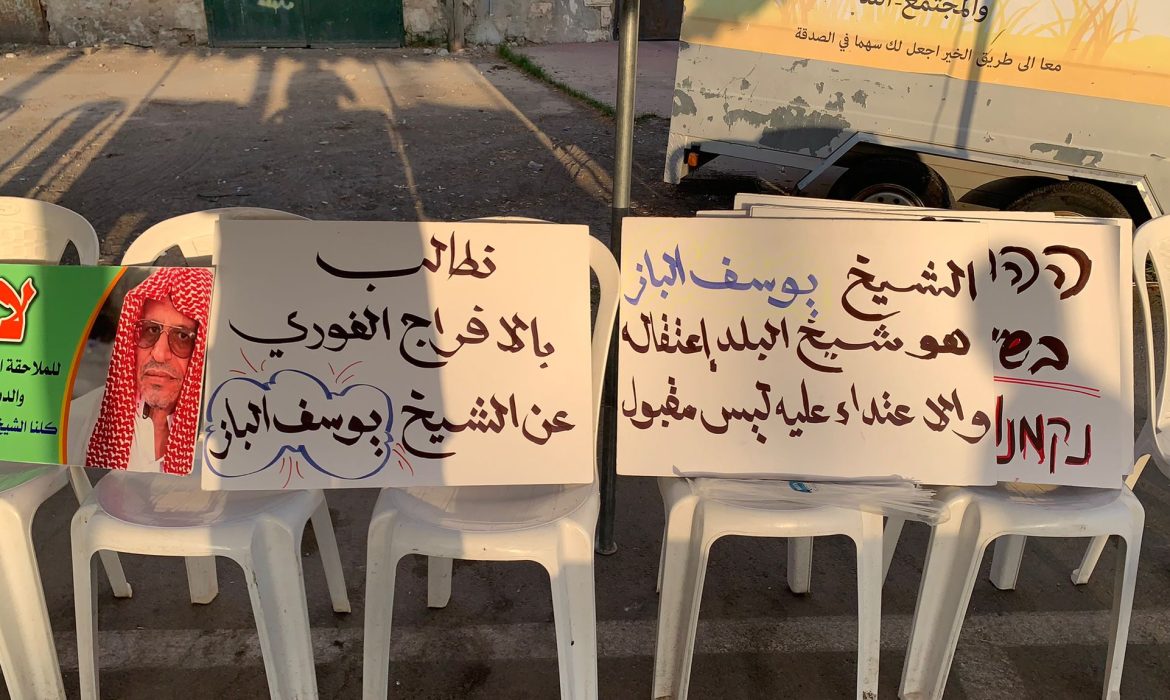 والمجتمع
معا الى طريق الخير اجعل لك سهما في الصدقة
للملاحقة
كلنا الشيخ
نطالب
بالافراج الفوري
عن الشيخ يوسف الباز
الشيخ يوسف الباز
هو شيخ البلد إعتقاله
والاعتداء عليه ليس مقبول